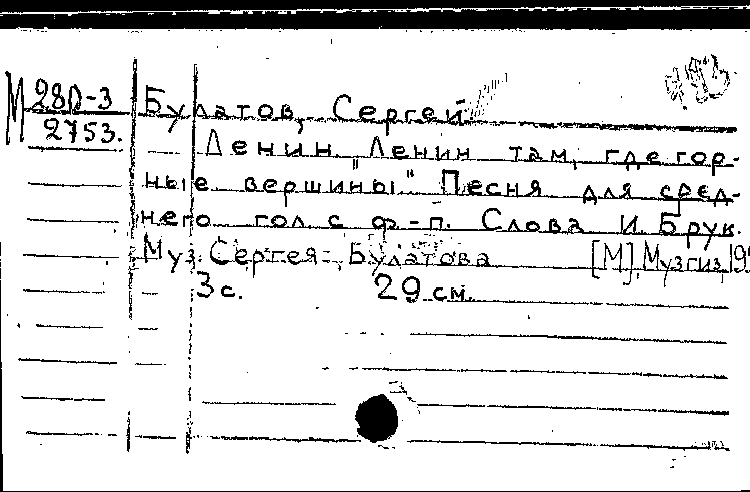 М 280-3
2753.
Булатов, Сергей
Ленин. "Ленин там, где гор-
ные вершины" Песня для сред-
него гол. с ф.-п. Слова И. Брук.
Муз. Сергея Булатова [М], Музгиз,
3 с. 29 см.